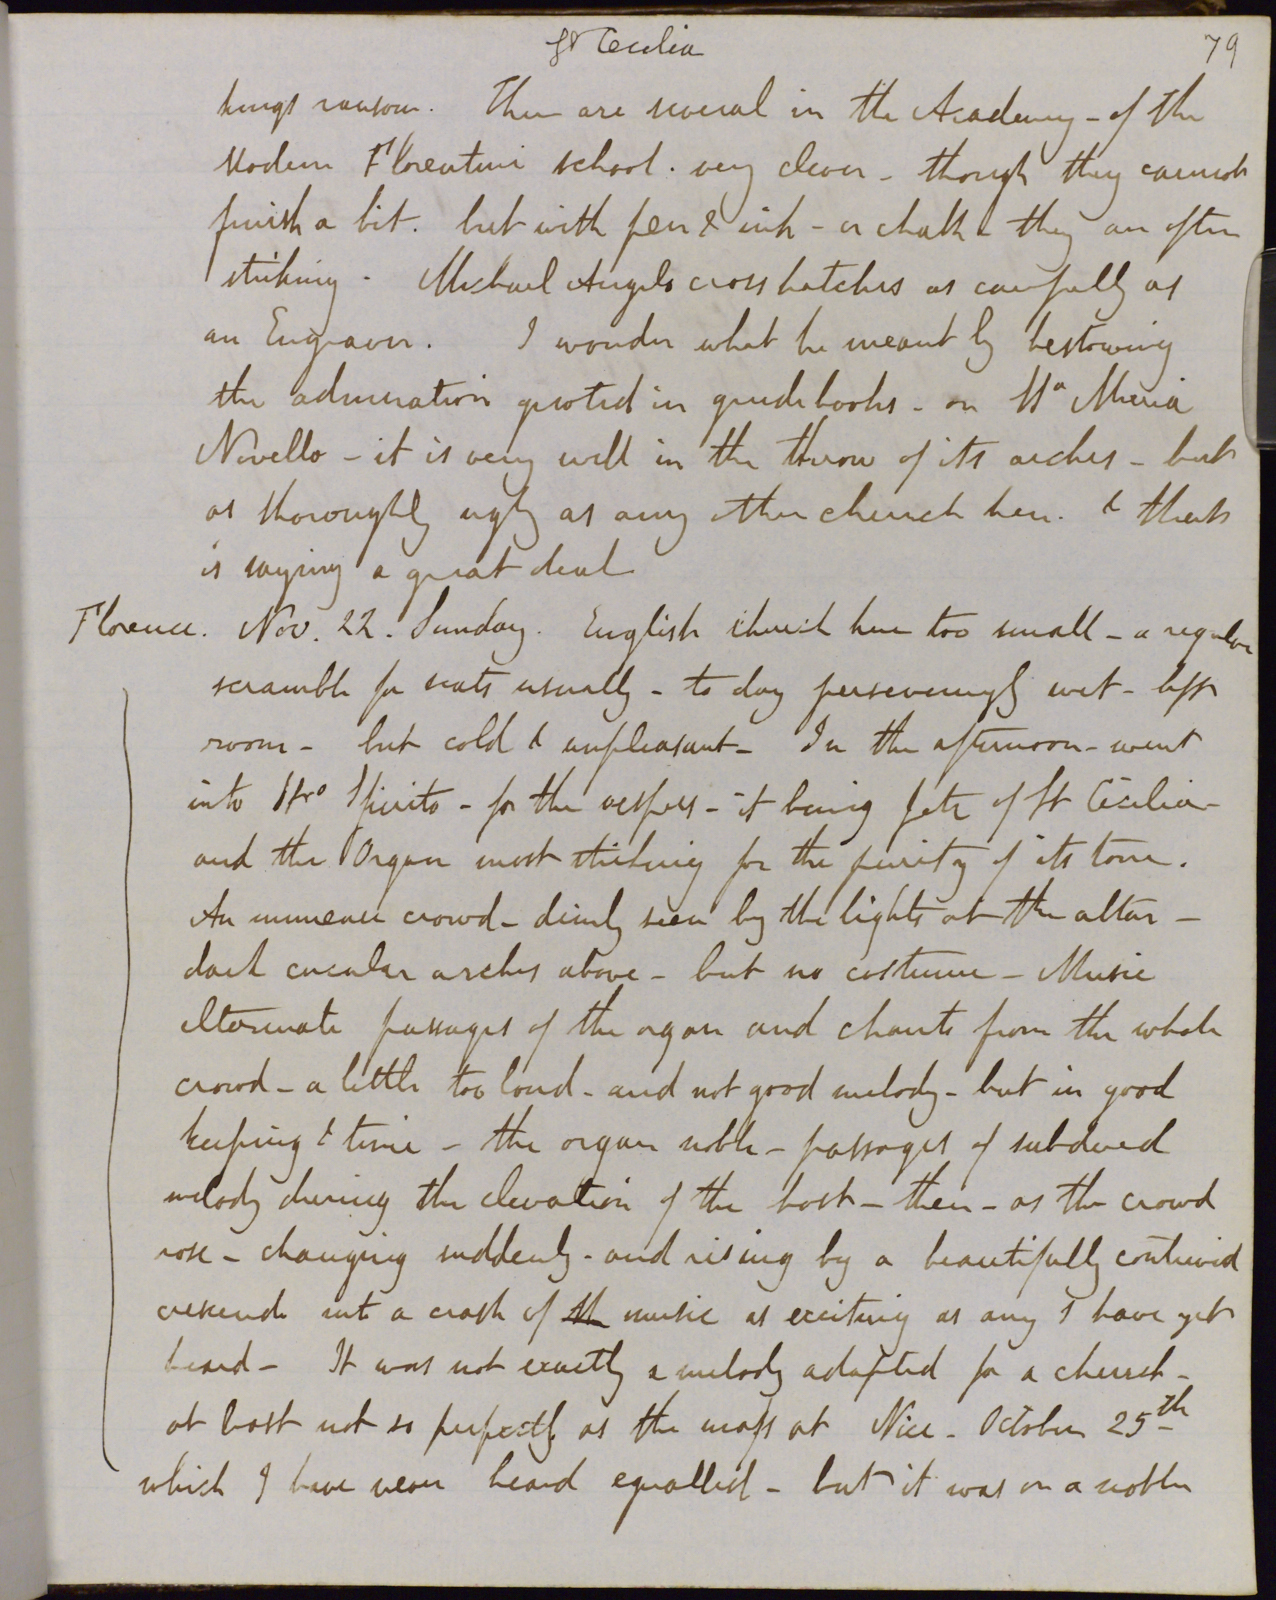 St Cecilia
79
kings ransom. There are several in the Academy - of the
Modern Florentine school. very clever - though they cannot
finish a bit. but with pen & ink - or chalk - they are often
striking - Michael Angelo cross hatches as carefully as
an Engraver. I wonder what he meant by bestowing
the admiration quoted in guidebooks - on Sta Maria
Novello - it is very well in the throw of its arches - but
as thoroughly ugly as any other church here. & that
is saying a great deal
Florence. Nov. 22. Sunday. English church here too small - a regular
scramble for seats usually - to day perseveringly wet - left
room - but cold & unpleasant - In the afternoon - went
into Sto Spirito - for the vespers - it being fete of St Cecilia -
and the Organ most striking for the purity of its tone.
An immense crowd - dimly seen by the lights at the altar -
dark circular arches above - but no costume - Music
alternate passages of the organ and chants from the whole
crowd - a little too loud - and not good melody - but in good
keeping & time - the organ noble - passages of subdued
melody during the elevation of the host - then - as the crowd
rose - changing suddenly - and rising by a beautifully contrived
crescendo into a crash of th music as exciting as any I have yet
heard - It was not exactly a melody adapted for a church -
at least not so perfectly as the mass at Nice - October 25th -
which I have never heard equalled - but it was on a nobler